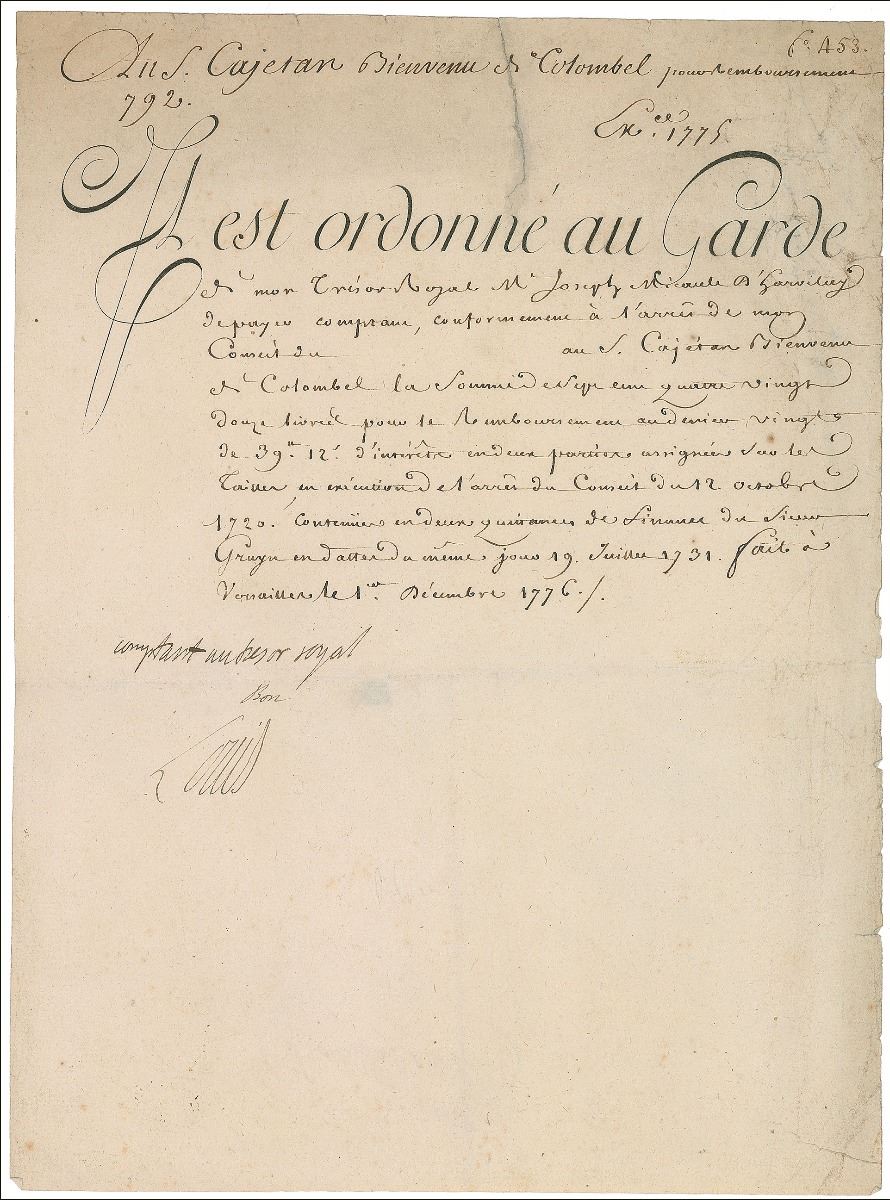 fo. 453.
Au S. Cajetan Bienvenu de Colombel pour Remboursement
792.
Ex.ce 1775
Il est ordonné au Garde
de mon Trésor Royal Me. Joseph Micault D'harvelay
de payer comptant, conformement à l'arrêt de mon
Conseil du au S. Cajétan Bienvenu
de Colombel la Somme de Sept cent quatre vingt
douze livres pour le Remboursement au denier vingt
de 39.tt 12.s d'intérêts en deux parties assignées sur les
Tailles en exécution de l'arrêt du Conseil du 12. octobre
1720. Contenües en deux quittances de finance du Sieur
Gruyn en datte du même jour 19. Juillet 1731. fait à
Versailles le 1.er Décembre 1776./.
comptant au tresor royal
Bon
Louis